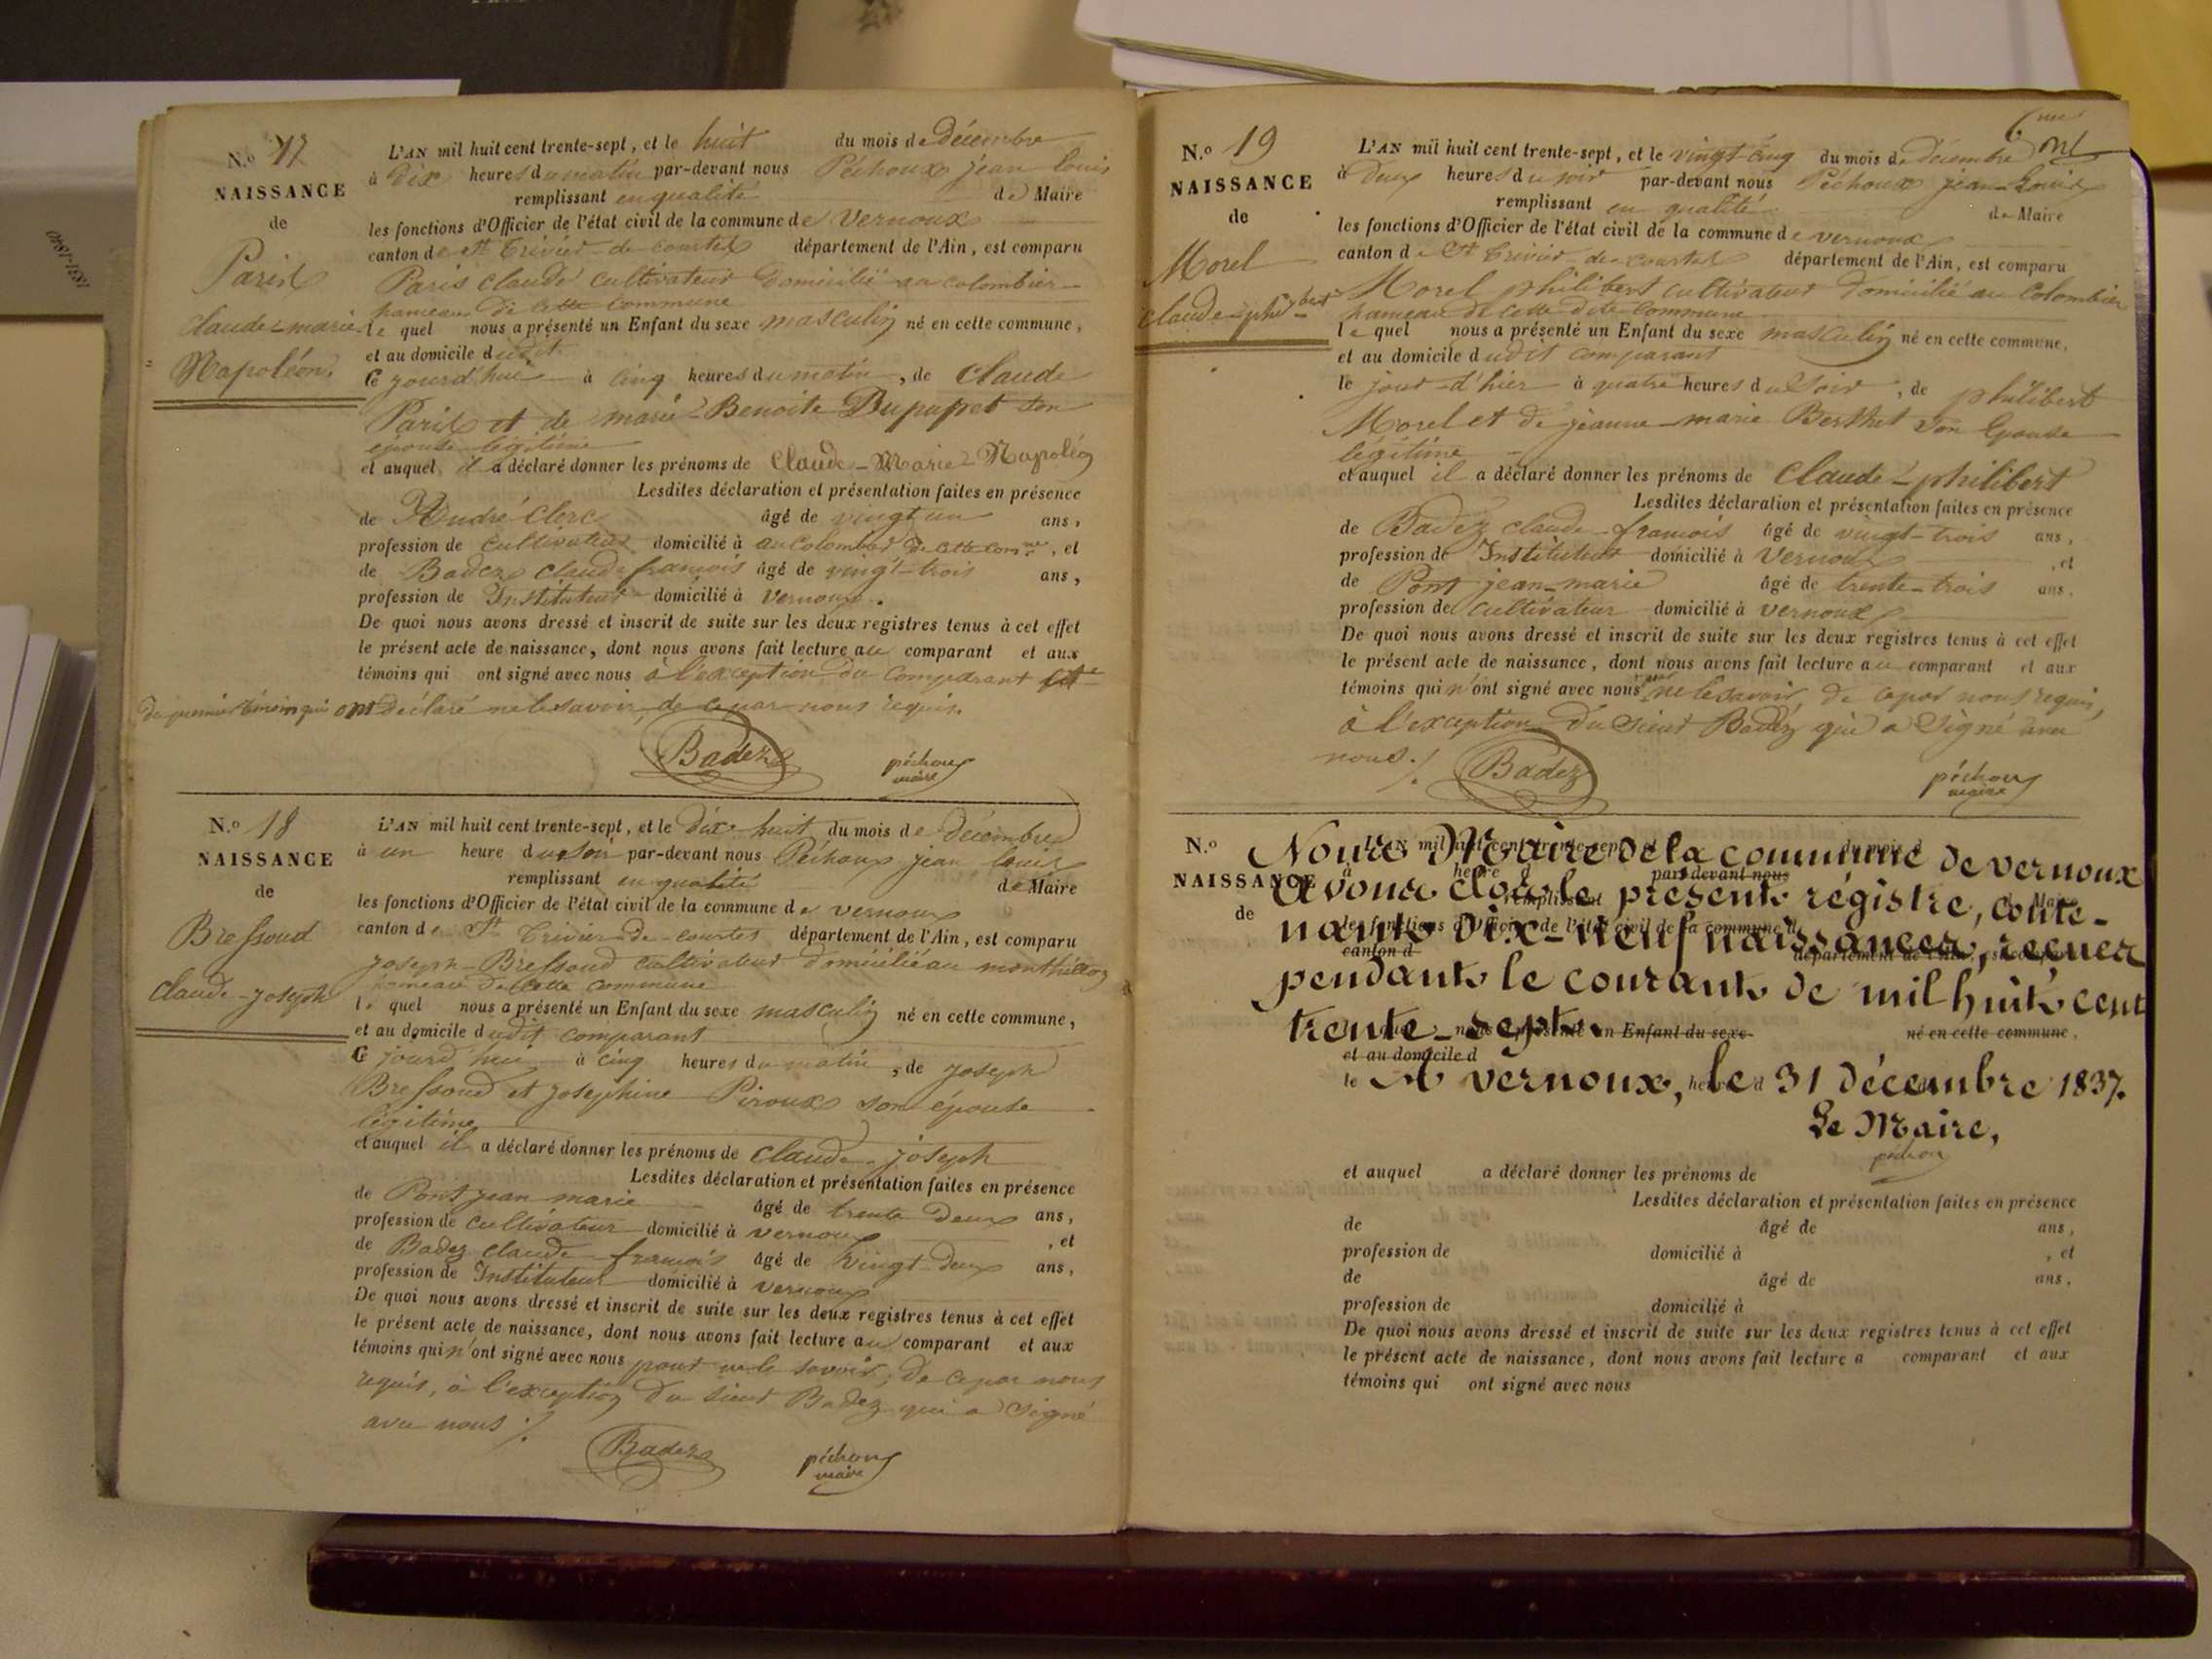 N.o 17
NAISSANCE
de
Paris
claude-marie
Napoléon.
L'AN mil huit cent trente-sept, et le huit du mois de décembre
à dix heures du matin par-devant nous Péchoux jean louis
remplissant en qualité de Maire
les fonctions d'Officier de l'état civil de la commune de Vernoux
canton de St Trivier-de-courtes département de l'Ain, est comparu
Paris claude cultivateur domicilié au colombier
hameau de cette commune
le quel nous a présenté un Enfant du sexe masculin né en cette commune,
et au domicile dudit
Ce jourd'hui à cinq heures du matin, de Claude
Paris et de marie-Benoite Dupupet son
épouse légitime
et auquel il a déclaré donner les prénoms de Claude-Marie-Napoléon
Lesdites déclaration et présentation faites en présence
de André Clerc âgé de vingt un ans,
profession de cultivateur domicilié à au colombier de cette comne, et
de Badez claude françois âgé de vingt-trois ans,
profession de Instituteur domicilié à Vernoux.
De quoi nous avons dressé et inscrit de suite sur les deux registres tenus à cet effet
le présent acte de naissance, dont nous avons fait lecture au comparant et aux
témoins qui ont signé avec nous à l'exception du comparant et
du premier témoin qui ont déclaré ne le savoir, de ce par nous requis.
Badez péchoux
maire
N.o 18
NAISSANCE
de
Bressoud
claude-joseph
L'AN mil huit cent trente-sept, et le dix-huit du mois de décembre
à un heure du soir par-devant nous Péchoux jean louis
remplissant en qualité de Maire
les fonctions d'Officier de l'état civil de la commune de vernoux
canton de St Trivier-de-courtes département de l'Ain, est comparu
joseph-Bressoud cultivateur domicilié au
hameau de cette commune
le quel nous a présenté un Enfant du sexe masculin né en cette commune,
et au domicile dudit comparant
Ce jourd'hui à cinq heures du matin, de joseph
Bressoud et josephine Piroux son épouse
légitime
et auquel il a déclaré donner les prénoms de Claude-joseph
Lesdites déclaration et présentation faites en présence
de Pont jean marie âgé de trente deux ans,
profession de cultivateur domicilié à vernoux, et
de Badez claude françois âgé de vingt-deux ans,
profession de Instituteur domicilié à vernoux
De quoi nous avons dressé et inscrit de suite sur les deux registres tenus à cet effet
le présent acte de naissance, dont nous avons fait lecture au comparant et aux
témoins qui n'ont signé avec nous pour ne le savoir, de ce par nous
requis, à l'exception du sieur Badez qui a signé
avec nous ./.
Badez péchoux
maire
6me
N.o 19
NAISSANCE
de
Morel
claude-philibert
L'AN mil huit cent trente-sept, et le vingt-cinq du mois de décembre
à deux heures du soir par-devant nous Péchoux jean-Louis
remplissant en qualité de Maire
les fonctions d'Officier de l'état civil de la commune de vernoux
canton de St Trivier-de-courtes département de l'Ain, est comparu
Morel philibert cultivateur domicilié au Colombier
hameau de cette dite commune
le quel nous a présenté un Enfant du sexe masculin né en cette commune,
et au domicile dudit comparant
le jour-d'hier à quatre heures du soir, de philibert
Morel et de jeanne-marie Berthet son épouse
légitime
et auquel il a déclaré donner les prénoms de Claude-philibert
Lesdites déclaration et présentation faites en présence
de Badez claude-françois âgé de vingt-trois ans,
profession de Instituteur domicilié à Vernoux, et
de Pont jean-marie âgé de trente-trois ans,
profession de cultivateur domicilié à vernoux
De quoi nous avons dressé et inscrit de suite sur les deux registres tenus à cet effet
le présent acte de naissance, dont nous avons fait lecture au comparant et aux
témoins qui n'ont signé avec nous pour ne le savoir, de ce par nous requis,
à l'exception du sieur Badez qui a signé avec
nous ./.
Badez péchoux
maire
N.o
NAISSANCE
de
Nous Maire de la commune de vernoux
avons clos le présent régistre, conte-
nant dix-neuf naissances, reçues
pendant le courant de mil huit cent
trente-sept.
Enfant du sexe né en cette commune,
et au domicile d
A vernoux, le 31 décembre 1837.
Le Maire,
péchoux
et auquel a déclaré donner les prénoms de
Lesdites déclaration et présentation faites en présence
de âgé de ans,
profession de domicilié à , et
de âgé de ans,
profession de domicilié à
De quoi nous avons dressé et inscrit de suite sur les deux registres tenus à cet effet
le présent acte de naissance, dont nous avons fait lecture a comparant et aux
témoins qui ont signé avec nous